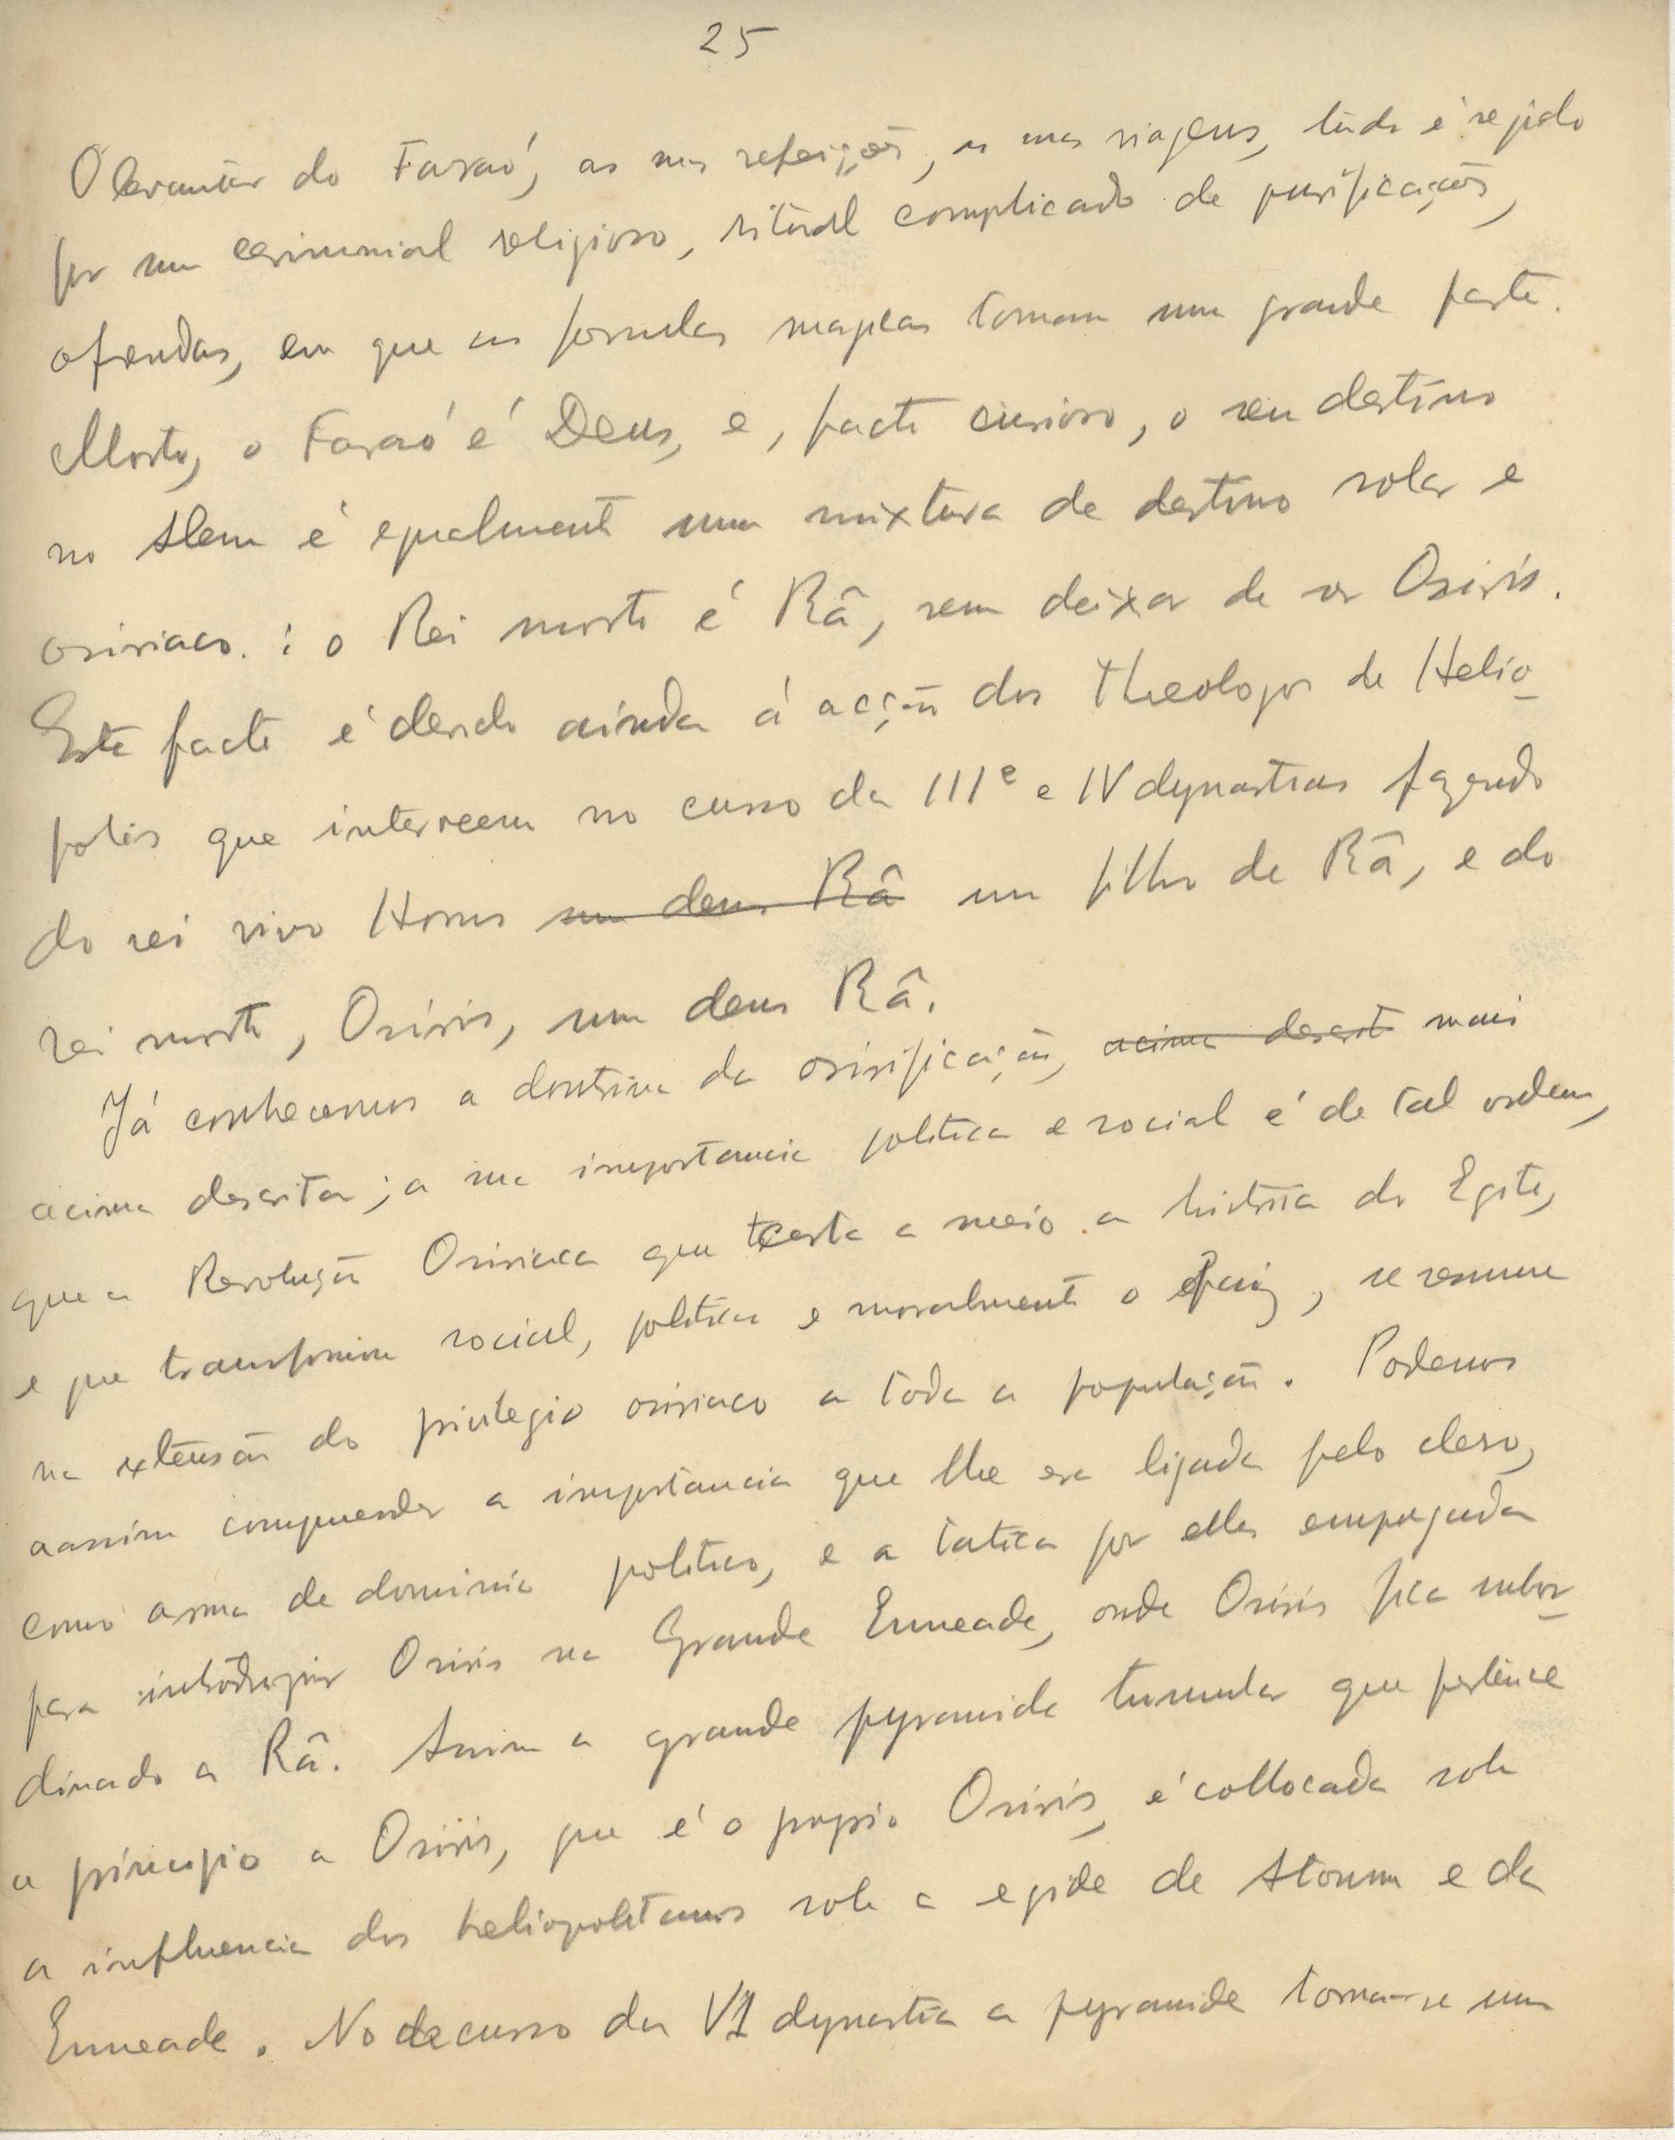 25
O levantar do Faraó, as suas refeições, as suas viagens, tudo é regido
por um cerimonial religioso, ritual complicado de purificações,
ofrendas, em que as formulas magicas tomam uma grande parte.
Morto, o Faraó é Deus, e, facto curioso, o seu destino
no Alem é egualmente uma mixtura de destino solar e
osiriaco. : o Rei morto é Râ, sem deixar de ser Osiris.
Este facto é devido ainda á acção dos Theologos de Helio-
polis que interveem no curso da IIIe e IV dynastias fazendo
do rei vivo Horus um deus Râ um filho de Râ, e do
rei morto, Osiris, um deus Râ.
Já conhecemos a doutrina da osirificação, acima descrit mais
acima descrita; a sua importancia politica e social é de tal ordem,
que a Revolução Osiriaca que corta a meio a historia do Egito,
e que transforma social, politica e moralmente o paiz, se resume
na extensão do privilegio osiriaco a toda a população. Podemos
aassim comprender a importancia que lhe era ligada pelo clero,
como arma de dominio politico, e a tatica por elles empregada
para introduzir Osiris na Grande Enneade, onde Osiris fica subor-
dinado a Râ. Assim a grande pyramide tumular que pertence
a principio a Osiris, que é o proprio Osiris, é collocada sob
a influencia dos heliopolitanos sob a egide de Atoum e da
Enneade. No decurso da VI dynastia a pyramide torna-se um